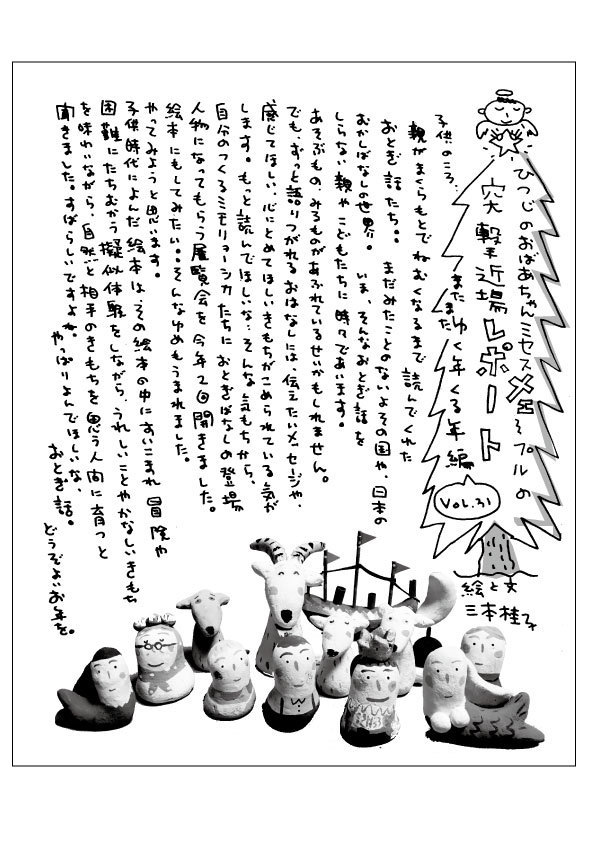 ひつじのおばあちゃんミセスメープルの
突撃近場レポート
またまたゆく年くる年編
VOL.31
絵と文
三本桂子
子供のころ、
親がまくらもとでねむくなるまで読んでくれた
おとぎ話たち。。まだみたことのないよその国や、日本の
むかしばなしの世界。 いま、そんなおとぎ話を
しらない親やこどもたちに時々であいます。
あそぶもの、みるものがあふれているせいかもしれません。
でも、ずっと語りつがれるおはなしには、伝えたいメッセージや、
感じてほしい、心にとめてほしいきもちがこめられている気が
します。もっと読んでほしいな。そんな気もちから、
自分のつくるミモリョーシカたちにおとぎばなしの登場
人物になってもらう展覧会を今年2回開きました。
絵本にもしてみたい。。そんなゆめもうまれました。
やってみようと思います。
子供時代によんだ絵本は、その絵本の中にすいこまれ冒険や
困難にたちむかう擬似体験をしながら、うれしいことやかなしいきもち
を味わいながら、自然と相手のきもちを思う人間に育つと
聞きました。すばらしいですよね。
やっぱりよんでほしいな、
おとぎ話。
どうぞよいお年を。